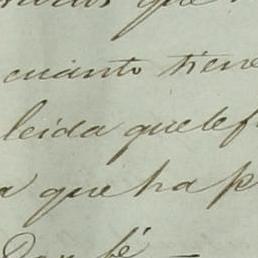 que
cuanto tiene
leida que le f
a que ha p
fé